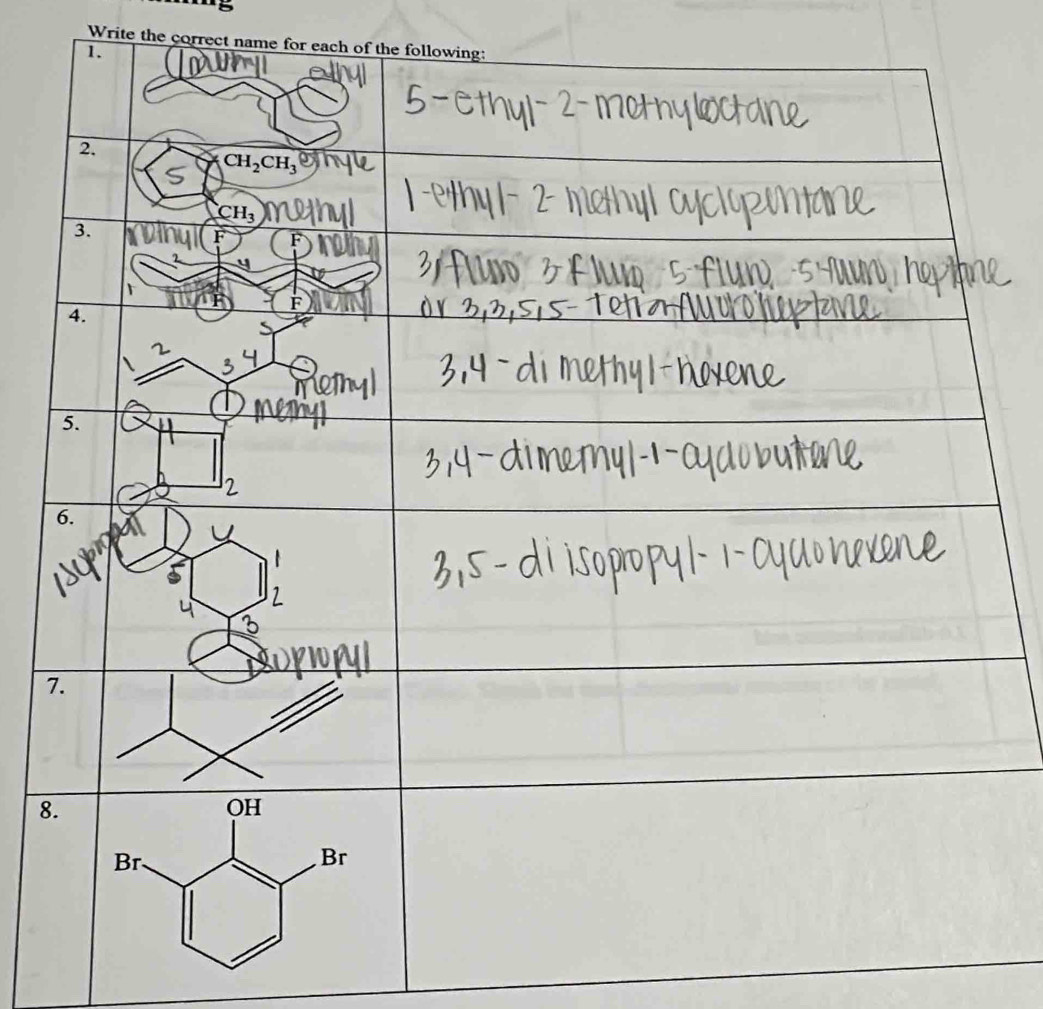 Write the correct name for each of the following:
1.
ethyl
5-ethyl-2-methyloctane
2.
5
CH₂CH₃
CH₃ methyl
1-ethyl-2-methyl cyclopentane
3.
methyl F F methyl
1 2 4 5 6
F F
3,fluro 3-fluro, 5-fluro, -5-fluro, heptane
or 3,3,5,5-tetrafluroheptane
4.
1 2 3 4 5 6
methyl
methyl
3,4-dimethyl-hexene
5.
4 1
3 2
3,4-dimethyl-1-cyclobutene
6.
isopropyl
6 1
5 2
4 3
isopropyl
3,5-diisopropyl-1-cyclohexene
7.
8.
OH
Br Br